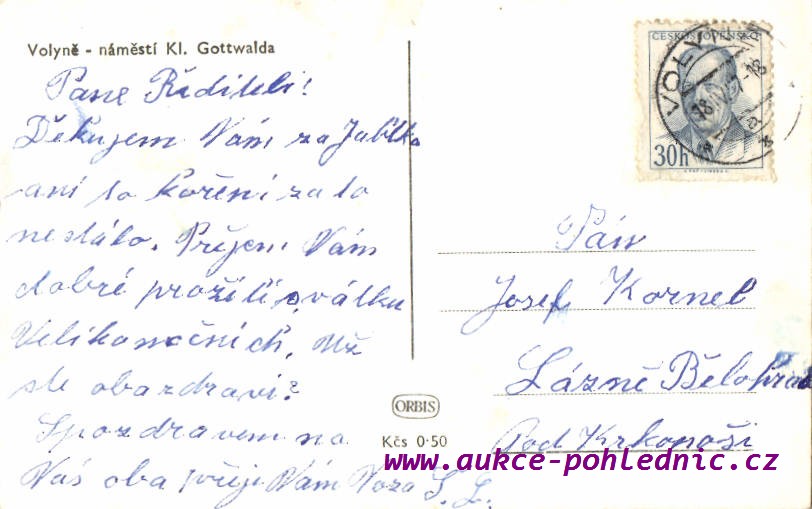 Volyně - náměstí Kl. Gottwalda
Pane Řediteli!
Děkujem Vám za Jablka
ani to koření za to
nestálo. Přejem Vám
dobré prožití svátků
Velikanočních. Už
ste oba zdraví?
Spozdravem na
Vás oba přeje Vám S. L.
ČESKOSLOVENSKO
30h
VOLY
Pán
Josef Kornel
Lázně Bělohrad
Pod Krkonoši
ORBIS
Kčs 0·50
www.aukce-pohlednic.cz